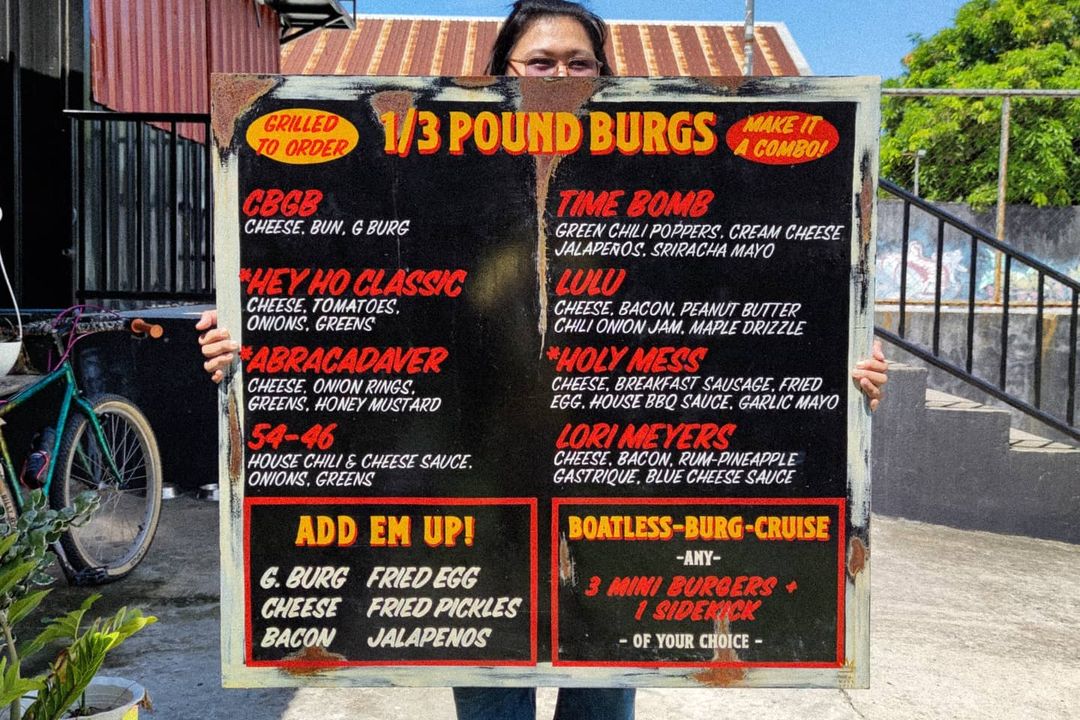 GRILLED
TO ORDER
1/3 POUND BURGS
MAKE IT
A COMBO!
CBGB
CHEESE, BUN, G BURG
*HEY HO CLASSIC
CHEESE, TOMATOES,
ONIONS, GREENS
*ABRACADAVER
CHEESE, ONION RINGS,
GREENS, HONEY MUSTARD
54-46
HOUSE CHILI & CHEESE SAUCE,
ONIONS, GREENS
TIME BOMB
GREEN CHILI POPPERS, CREAM CHEESE
JALAPEÑOS, SRIRACHA MAYO
LULU
CHEESE, BACON, PEANUT BUTTER
CHILI ONION JAM, MAPLE DRIZZLE
*HOLY MESS
CHEESE, BREAKFAST SAUSAGE, FRIED
EGG, HOUSE BBQ SAUCE, GARLIC MAYO
LORI MEYERS
CHEESE, BACON, RUM-PINEAPPLE
GASTRIQUE, BLUE CHEESE SAUCE
ADD EM UP!
G. BURG FRIED EGG
CHEESE FRIED PICKLES
BACON JALAPENOS
BOATLESS-BURG-CRUISE
-ANY-
3 MINI BURGERS +
1 SIDEKICK
- OF YOUR CHOICE -